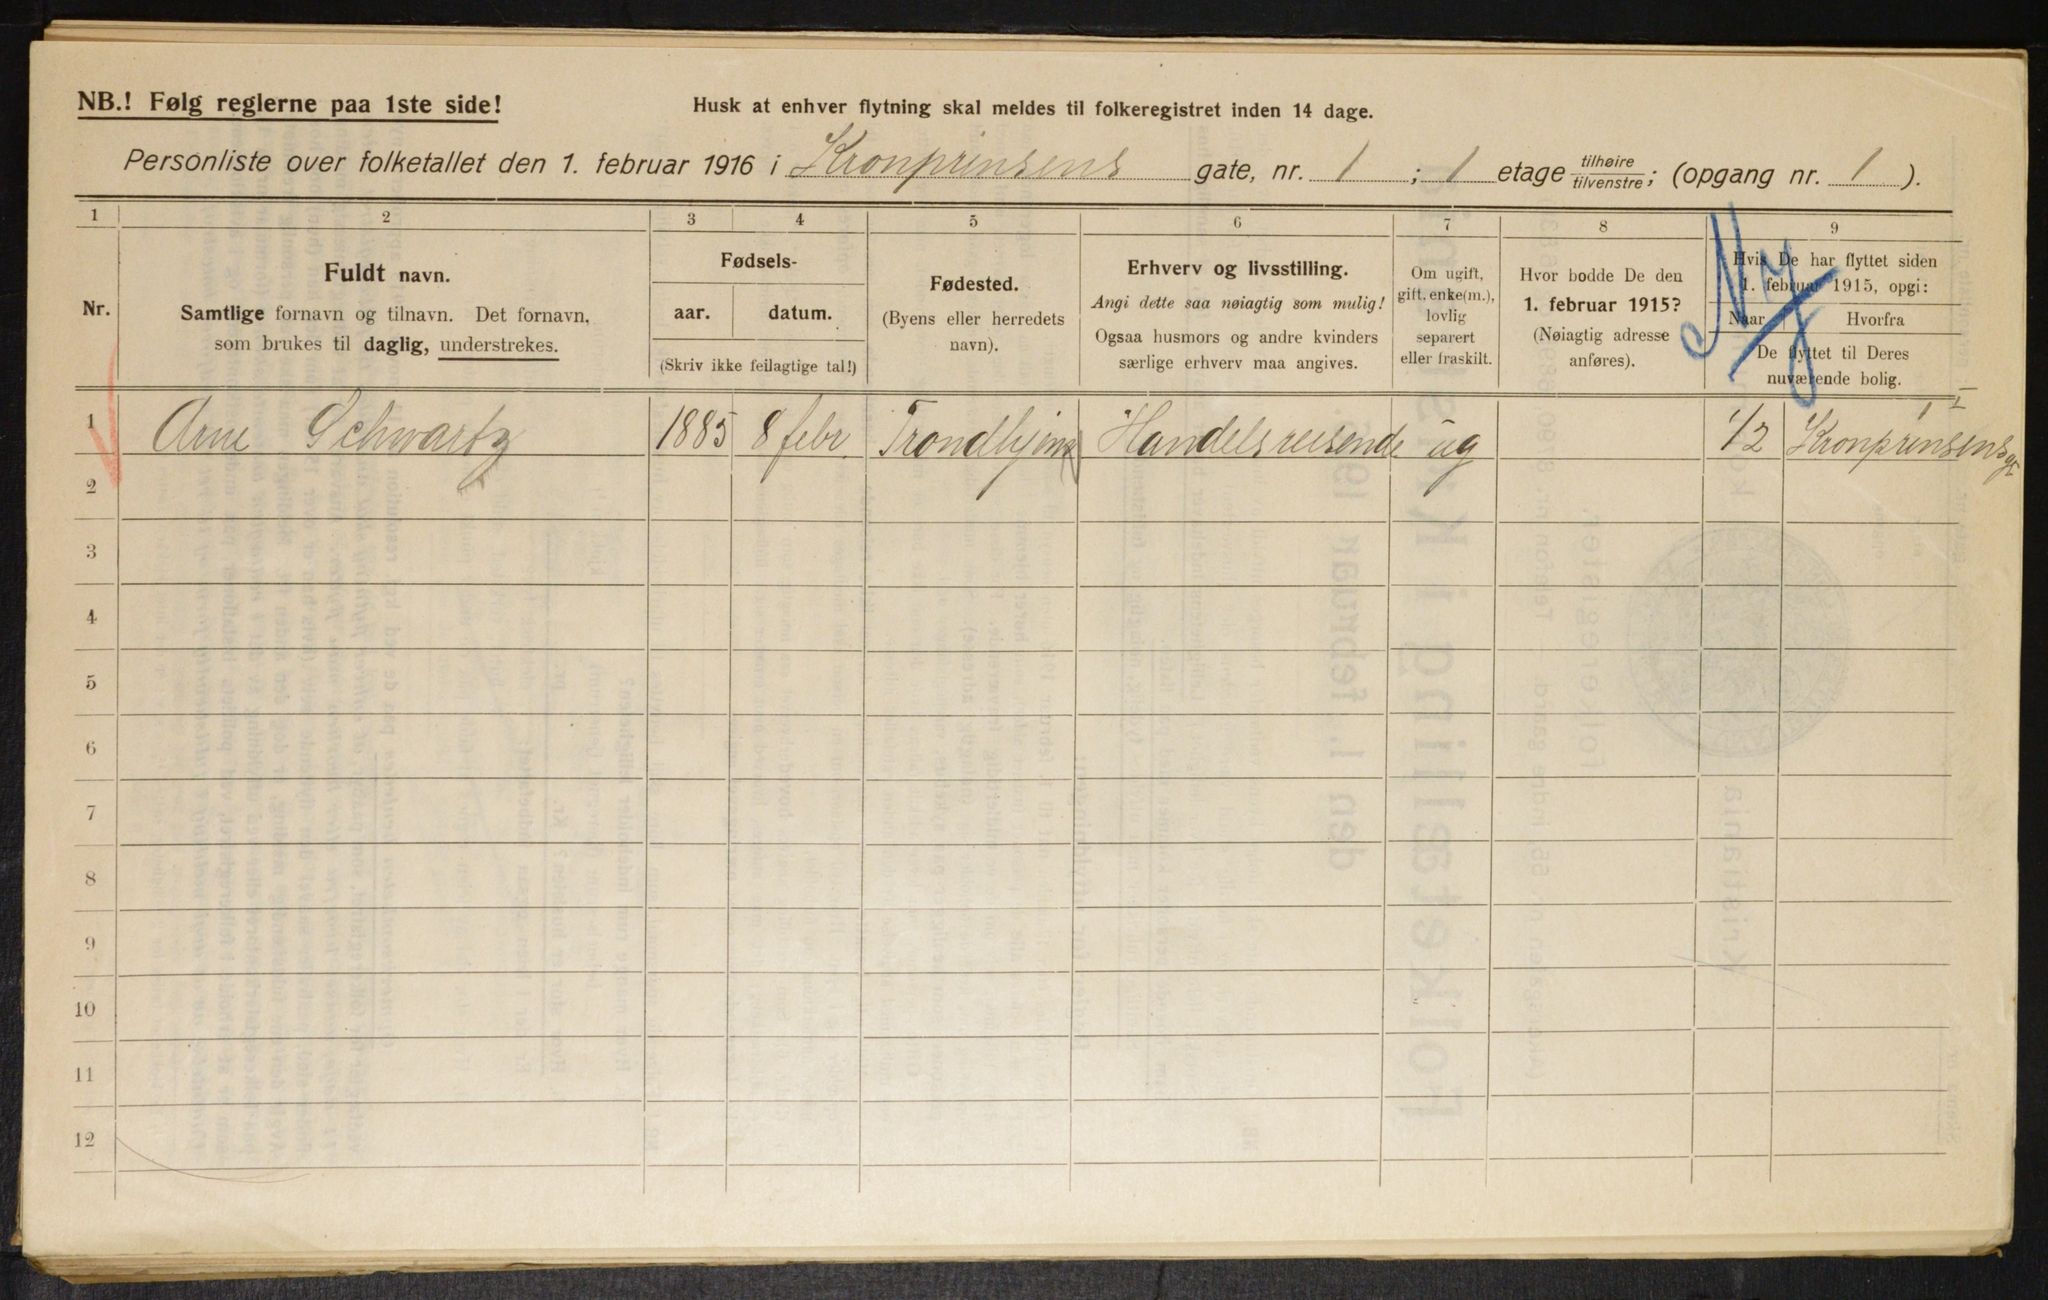 NB.! Følg reglerne paa 1ste side!
Husk at enhver flytning skal meldes til folkeregistret inden 14 dage.
Personliste over folketallet den 1. februar 1916 i Kronprinsens gate, nr. 1 ; 1 etage tilhøire/tilvenstre; (opgang nr. 1 ).
1 2 3 4 5 6 7 8 9
Nr.
Fuldt navn.
Samtlige fornavn og tilnavn. Det fornavn,
som brukes til daglig, understrekes.
Fødsels-
aar. datum.
(Skriv ikke feilagtige tal!)
Fødested.
(Byens eller herredets
navn).
Erhverv og livsstilling.
Angi dette saa nøiagtig som mulig!
Ogsaa husmors og andre kvinders
særlige erhverv maa angives.
Om ugift,
gift, enke(m.),
lovlig
separert
eller fraskilt.
Hvor bodde De den
1. februar 1915?
(Nøiagtig adresse
anføres).
Hvis De har flyttet siden
1. februar 1915, opgi:
Naar Hvorfra
De flyttet til Deres
nuværende bolig.
Ny
1 Arne Schwartz 1885 8 febr. Trondhjem Handelsreisende ug 1/2 Kronprinsensgt 1 I
2
3
4
5
6
7
8
9
10
11
12